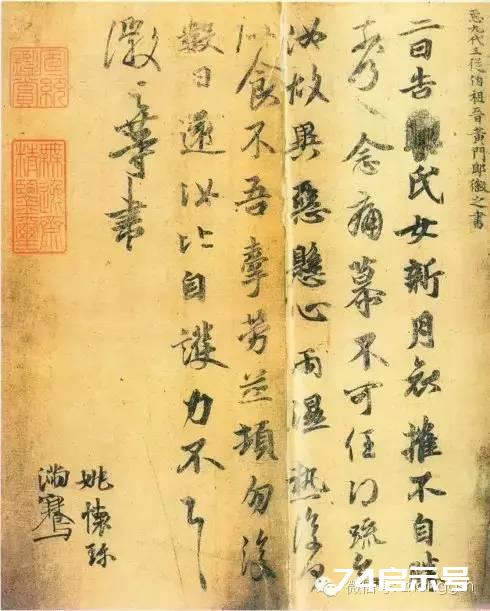 九代三從伯祖晉黃門郎徽之書
二日告氏女新月哀摧不自勝
奈何〻念痛慕不可任得疏知
汝故異惡懸心雨濕熱復何
似食不吾牽勞並頓勿復
數日還汝比自護力不具
徽之等書
姚懷珍
滿騫
74启示号
微信号: